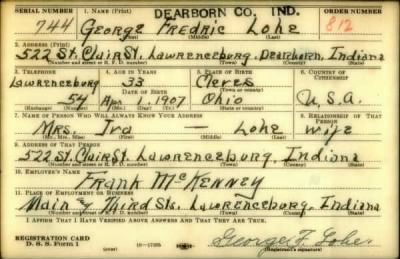 SERIAL NUMBER 1. NAME (Print) DEARBORN CO. IND. ORDER NUMBER
744 George Fredric Lohe 812
(First) (Middle) (Last)
2. ADDRESS (Print)
522 St. Clair St. Lawrenceburg, Dearborn, Indiana
(Number and street or R. F. D. number) (Town) (County) (State)
3. TELEPHONE 4. AGE IN YEARS 5. PLACE OF BIRTH 6. COUNTRY OF CITIZENSHIP
Lawrenceburg 33 Cleves
DATE OF BIRTH (Town or county)
54 Apr 1 1907 Ohio U.S.A.
(Exchange) (Number) (Mo.) (Day) (Yr.) (State or country)
7. NAME OF PERSON WHO WILL ALWAYS KNOW YOUR ADDRESS 8. RELATIONSHIP OF THAT PERSON
Mrs. Iva — Lohe wife
(Mr., Mrs., Miss) (First) (Middle) (Last)
9. ADDRESS OF THAT PERSON
522 St. Clair St. Lawrenceburg, Indiana
(Number and street or R. F. D. number) (Town) (County) (State)
10. EMPLOYER'S NAME
Frank McKenney
11. PLACE OF EMPLOYMENT OR BUSINESS
Main & Third Sts. Lawrenceburg, Indiana
(Number and street or R. F. D. number) (Town) (County) (State)
I AFFIRM THAT I HAVE VERIFIED ABOVE ANSWERS AND THAT THEY ARE TRUE.
REGISTRATION CARD
D. S. S. Form 1 George F. Lohe
(Registrant's signature)